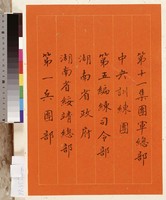 第十一集團軍總部
中央訓練團
第五編練司令部
湖南省政府
湖南省綏靖總部
第一兵團部